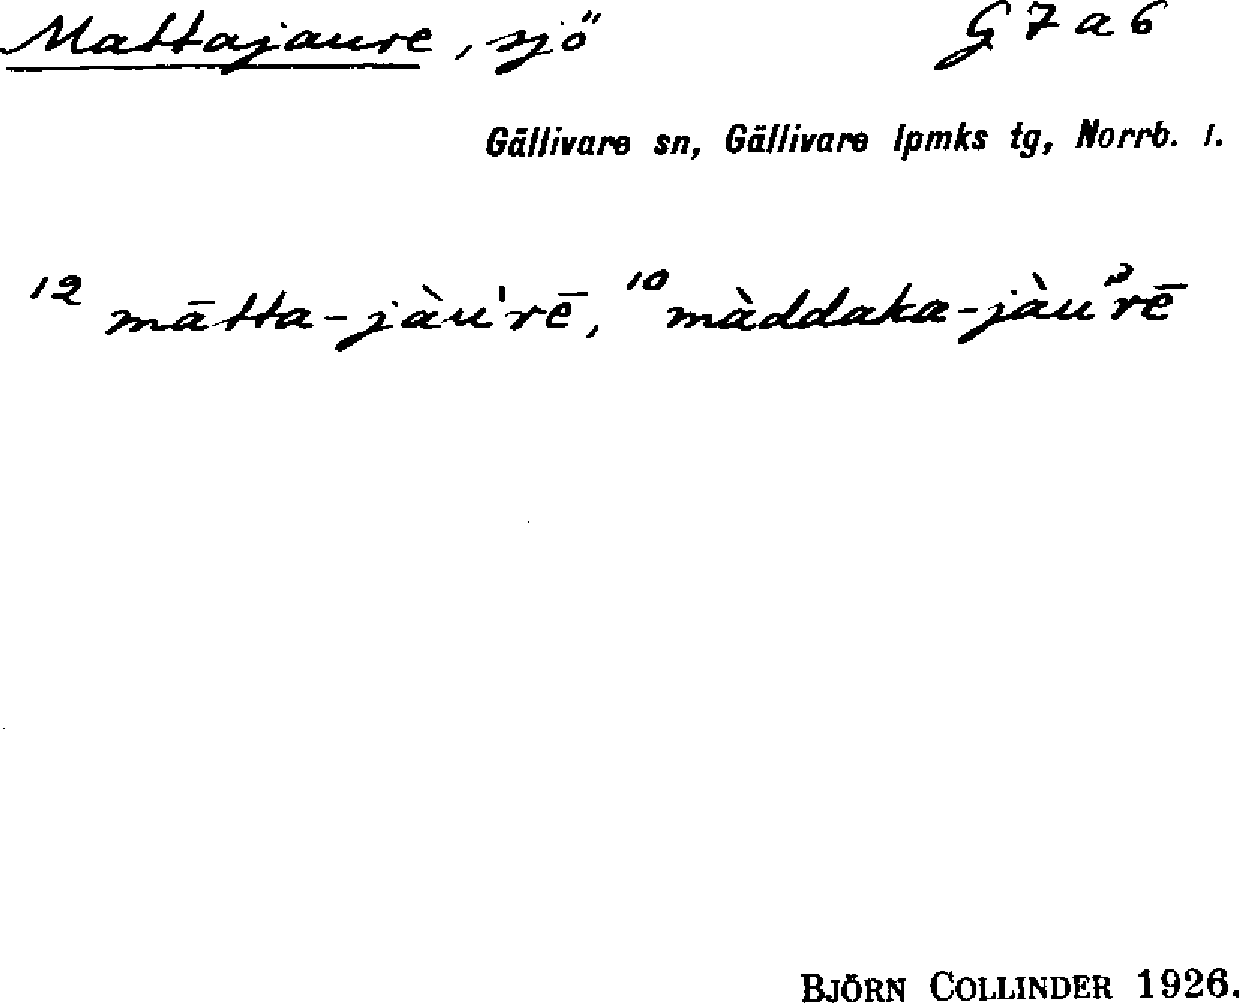 Mattajaure, sjö G7a6
Gällivare sn, Gällivare lpmks tg, Norrb. l.
¹² mātta-jàu'rē, ¹⁰ màddaka-jàuᵓrē
BJÖRN COLLINDER 1926.